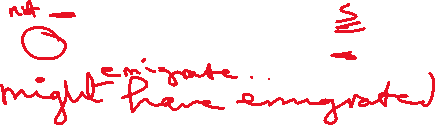 not
emigrate..
might have emigrated